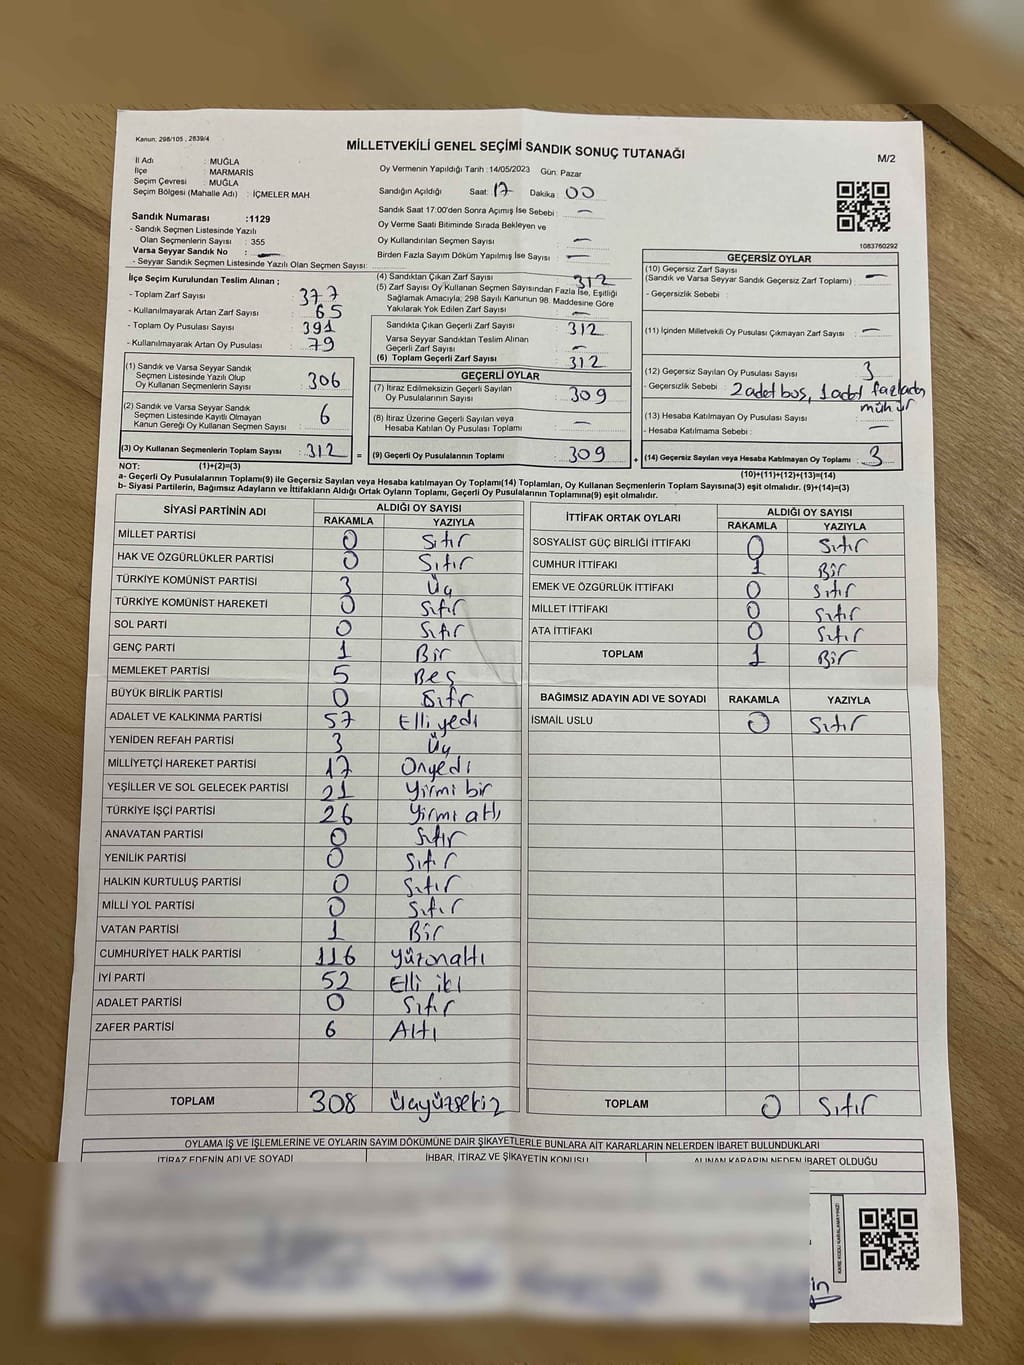 Kanun: 298/105 , 2839/4
MİLLETVEKİLİ GENEL SEÇİMİ SANDIK SONUÇ TUTANAĞI
M/2
İl Adı : MUĞLA
İlçe : MARMARİS
Seçim Çevresi : MUĞLA
Seçim Bölgesi (Mahalle Adı) : İÇMELER MAH.
Oy Vermenin Yapıldığı Tarih :14/05/2023 Gün: Pazar
Sandığın Açıldığı Saat: 17 Dakika : 00
Sandık Saat 17:00'den Sonra Açımış İse Sebebi : —
Oy Verme Saati Bitiminde Sırada Bekleyen ve
Oy Kullandırılan Seçmen Sayısı : —
Birden Fazla Sayım Döküm Yapılmış İse Sayısı : —
Sandık Numarası :1129
- Sandık Seçmen Listesinde Yazılı
Olan Seçmenlerin Sayısı : 355
Varsa Seyyar Sandık No : —
- Seyyar Sandık Seçmen Listesinde Yazılı Olan Seçmen Sayısı:
1083760292
İlçe Seçim Kurulundan Teslim Alınan ;
- Toplam Zarf Sayısı : 377
- Kullanılmayarak Artan Zarf Sayısı : 65
- Toplam Oy Pusulası Sayısı : 391
- Kullanılmayarak Artan Oy Pusulası : 79
(1) Sandık ve Varsa Seyyar Sandık
Seçmen Listesinde Yazılı Olup
Oy Kullanan Seçmenlerin Sayısı : 306
(2) Sandık ve Varsa Seyyar Sandık
Seçmen Listesinde Kayıtlı Olmayan
Kanun Gereği Oy Kullanan Seçmen Sayısı : 6
(3) Oy Kullanan Seçmenlerin Toplam Sayısı : 312 =
(4) Sandıktan Çıkan Zarf Sayısı : 312
(5) Zarf Sayısı Oy Kullanan Seçmen Sayısından Fazla İse, Eşitliği
Sağlamak Amacıyla; 298 Sayılı Kanunun 98. Maddesine Göre
Yakılarak Yok Edilen Zarf Sayısı : —
Sandıkta Çıkan Geçerli Zarf Sayısı : 312
Varsa Seyyar Sandıktan Teslim Alınan
Geçerli Zarf Sayısı : —
(6) Toplam Geçerli Zarf Sayısı : 312
GEÇERLİ OYLAR
(7) İtiraz Edilmeksizin Geçerli Sayılan
Oy Pusulalarının Sayısı : 309
(8) İtiraz Üzerine Geçerli Sayılan veya
Hesaba Katılan Oy Pusulası Toplamı : —
(9) Geçerli Oy Pusulalarının Toplamı : 309 +
GEÇERSİZ OYLAR
(10) Geçersiz Zarf Sayısı
(Sandık ve Varsa Seyyar Sandık Geçersiz Zarf Toplamı) : —
- Geçersizlik Sebebi :
(11) İçinden Milletvekili Oy Pusulası Çıkmayan Zarf Sayısı : —
(12) Geçersiz Sayılan Oy Pusulası Sayısı : 3
- Geçersizlik Sebebi : 2 adet boş, 1 adet fazladan
mühür
(13) Hesaba Katılmayan Oy Pusulası Sayısı : —
- Hesaba Katılmama Sebebi :
(14) Geçersiz Sayılan veya Hesaba Katılmayan Oy Toplamı : 3
NOT: (1)+(2)=(3)
(10)+(11)+(12)+(13)=(14)
a- Geçerli Oy Pusulalarının Toplamı(9) ile Geçersiz Sayılan veya Hesaba katılmayan Oy Toplamı(14) Toplamları, Oy Kullanan Seçmenlerin Toplam Sayısına(3) eşit olmalıdır. (9)+(14)=(3)
b- Siyasi Partilerin, Bağımsız Adayların ve İttifakların Aldığı Ortak Oyların Toplamı, Geçerli Oy Pusulalarının Toplamına(9) eşit olmalıdır.
SİYASİ PARTİNİN ADI ALDIĞI OY SAYISI
RAKAMLA YAZIYLA
MİLLET PARTİSİ 0 Sıfır
HAK VE ÖZGÜRLÜKLER PARTİSİ 0 Sıfır
TÜRKİYE KOMÜNİST PARTİSİ 3 Üç
TÜRKİYE KOMÜNİST HAREKETİ 0 Sıfır
SOL PARTİ 0 Sıfır
GENÇ PARTİ 1 Bir
MEMLEKET PARTİSİ 5 Beş
BÜYÜK BİRLİK PARTİSİ 0 Sıfır
ADALET VE KALKINMA PARTİSİ 57 Elli yedi
YENİDEN REFAH PARTİSİ 3 Üç
MİLLİYETÇİ HAREKET PARTİSİ 17 Onyedi
YEŞİLLER VE SOL GELECEK PARTİSİ 21 Yirmi bir
TÜRKİYE İŞÇİ PARTİSİ 26 Yirmi altı
ANAVATAN PARTİSİ 0 Sıfır
YENİLİK PARTİSİ 0 Sıfır
HALKIN KURTULUŞ PARTİSİ 0 Sıfır
MİLLİ YOL PARTİSİ 0 Sıfır
VATAN PARTİSİ 1 Bir
CUMHURİYET HALK PARTİSİ 116 yüzonaltı
İYİ PARTİ 52 Elli iki
ADALET PARTİSİ 0 Sıfır
ZAFER PARTİSİ 6 Altı
TOPLAM 308 Üçyüzsekiz
İTTİFAK ORTAK OYLARI ALDIĞI OY SAYISI
RAKAMLA YAZIYLA
SOSYALİST GÜÇ BİRLİĞİ İTTİFAKI 0 Sıfır
CUMHUR İTTİFAKI 1 Bir
EMEK VE ÖZGÜRLÜK İTTİFAKI 0 Sıfır
MİLLET İTTİFAKI 0 Sıfır
ATA İTTİFAKI 0 Sıfır
TOPLAM 1 Bir
BAĞIMSIZ ADAYIN ADI VE SOYADI RAKAMLA YAZIYLA
İSMAİL USLU 0 Sıfır
TOPLAM 0 Sıfır
OYLAMA İŞ VE İŞLEMLERİNE VE OYLARIN SAYIM DÖKÜMÜNE DAİR ŞİKAYETLERLE BUNLARA AİT KARARLARIN NELERDEN İBARET BULUNDUKLARI
İTİRAZ EDENİN ADI VE SOYADI İHBAR, İTİRAZ VE ŞİKAYETİN KONUSU ALINAN KARARIN NEDEN İBARET OLDUĞU
KARE KODU KARALAMAYINIZ!